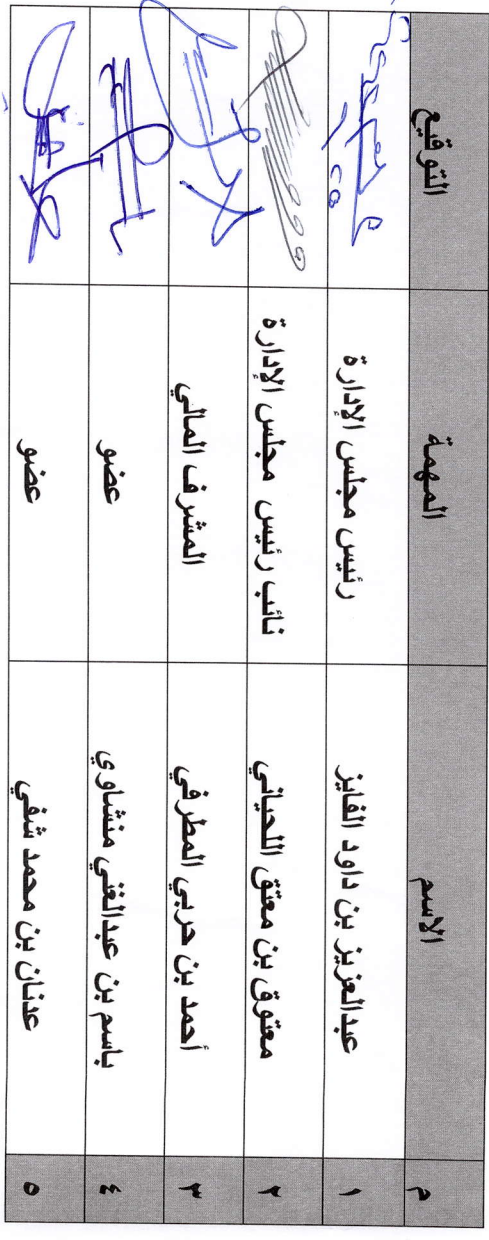 م الاسم المهمة التوقيع
١ عبدالعزيز بن داود الفايز رئيس مجلس الإدارة
٢ معتوق بن معتق اللحياني نائب رئيس مجلس الإدارة
٣ أحمد بن حربي المطرفي المشرف المالي
٤ باسم بن عبدالغني منشاوي عضو
٥ عدنان بن محمد شفي عضو